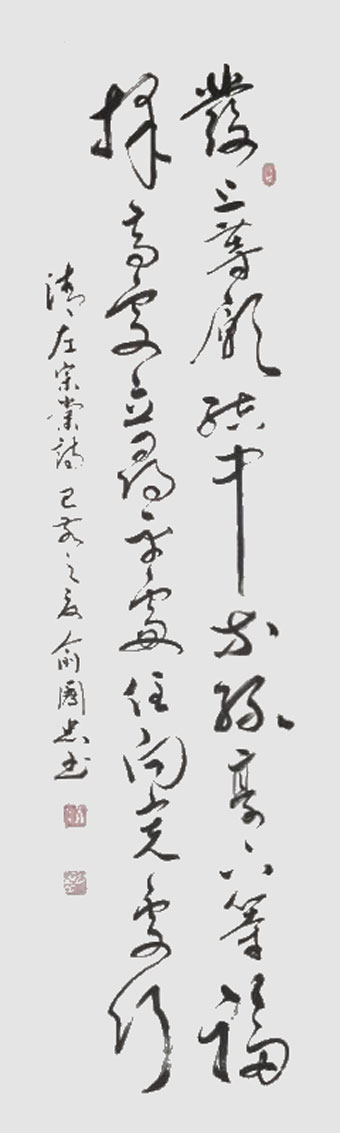 發上等願結中等緣享下等福
擇高處立尋平處住向寬處行
清左宗棠詩己亥之夏俞國忠书